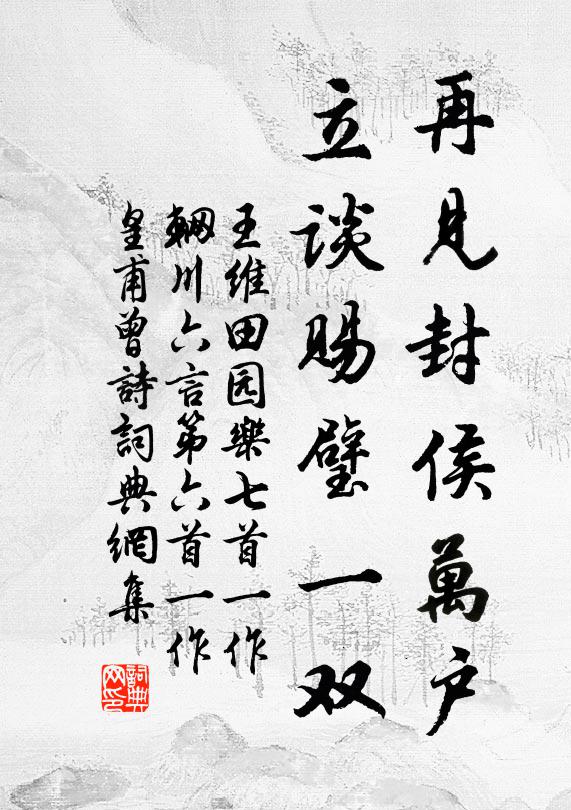 再見封侯萬户
立談賜璧一双
王維田园樂七首一作
輞川六言第六首一作
皇甫曾詩詞典網集
詞典网印